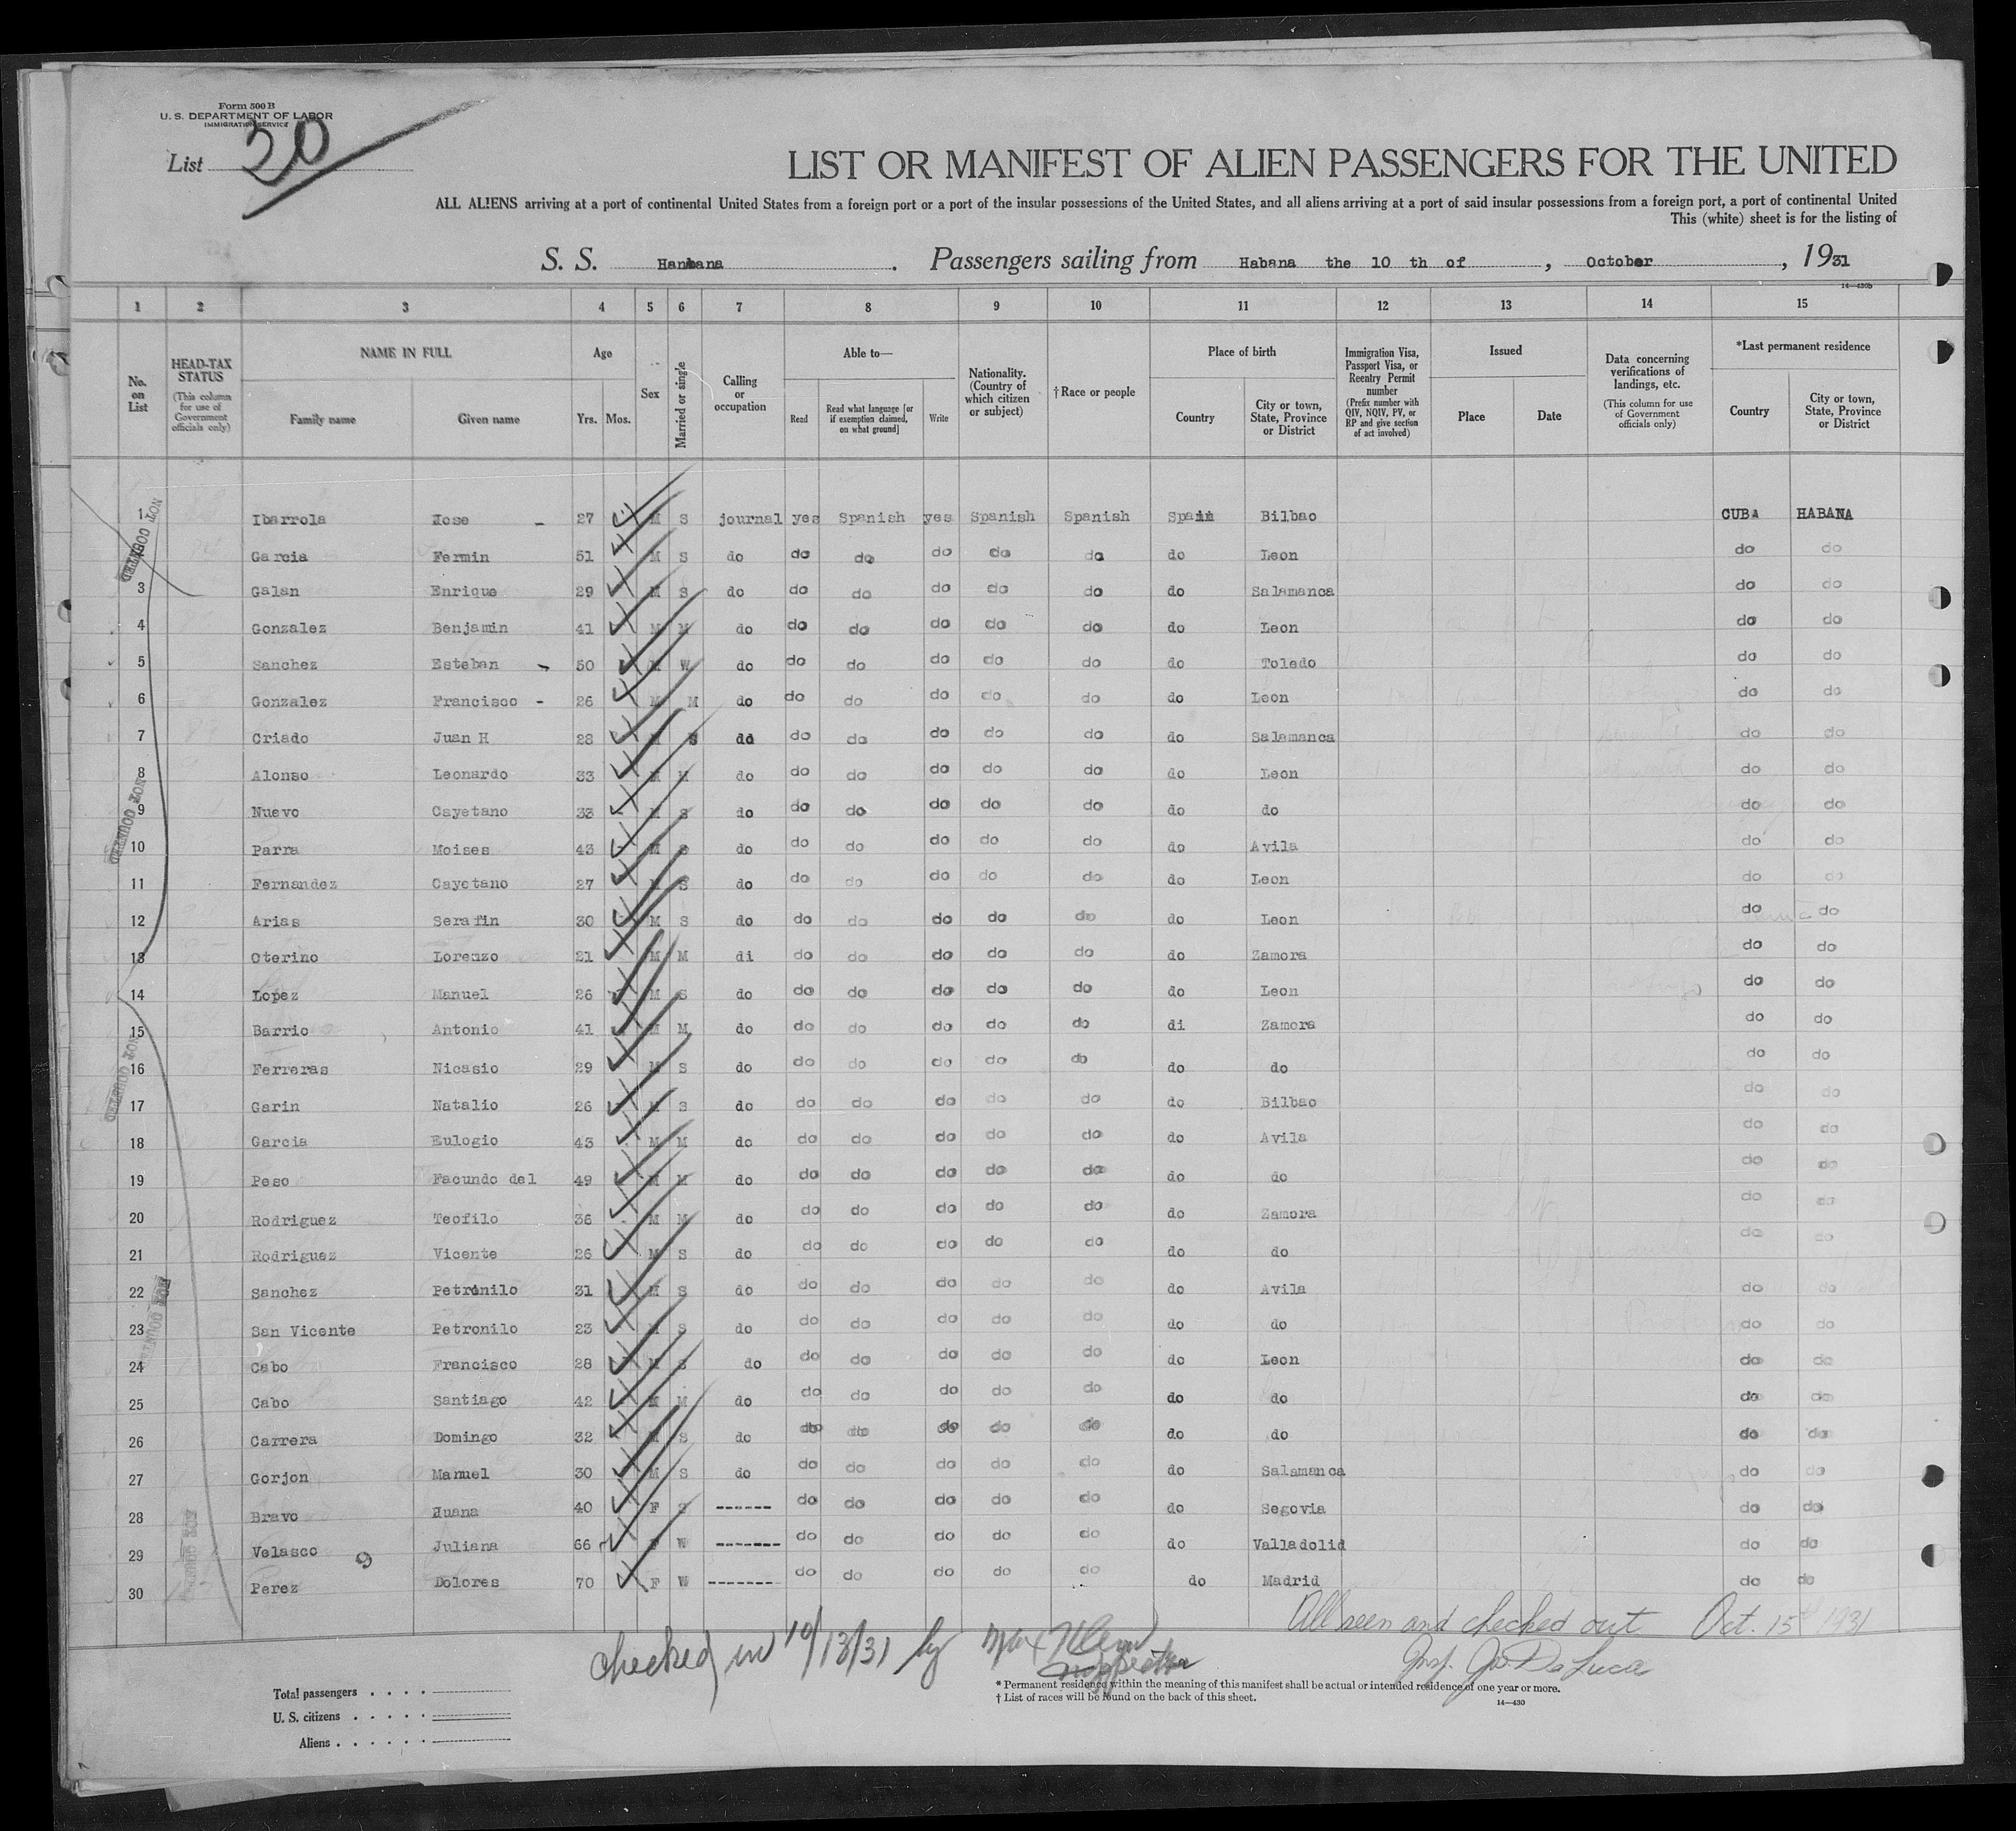 Form 500 B
U. S. DEPARTMENT OF LABOR
IMMIGRATION SERVICE
List 20
LIST OR MANIFEST OF ALIEN PASSENGERS FOR THE UNITED
ALL ALIENS arriving at a port of continental United States from a foreign port or a port of the insular possessions of the United States, and all aliens arriving at a port of said insular possessions from a foreign port, a port of continental United
This (white) sheet is for the listing of
S. S. Hanbana. Passengers sailing from Habana the 10 th of, October, 1931
14—430b
1 2 3 4 5 6 7 8 9 10 11 12 13 14 15
No. on List
HEAD-TAX STATUS (This column for use of Government officials only)
NAME IN FULL
Family name Given name
Age
Yrs. Mos.
Sex
Married or single
Calling or occupation
Able to—
Read
Read what language [or if exemption claimed, on what ground]
Write
Nationality. (Country of which citizen or subject)
† Race or people
Place of birth
Country
City or town, State, Province or District
Immigration Visa, Passport Visa, or Reentry Permit number (Prefix number with QIV, NQIV, PV, or RP and give section of act involved)
Issued
Place Date
Data concerning verifications of landings, etc. (This column for use of Government officials only)
*Last permanent residence
Country
City or town, State, Province or District
1 Ibarrola Jose - 27 M S journal yes Spanish yes Spanish Spanish Spain Bilbao CUBA HABANA
Garcia Fermin 51 M S do do do do do do do Leon do do
3 Galan Enrique 29 M S do do do do do do do Salamanca do do
4 Gonzalez Benjamin 41 M M do do do do do do do Leon do do
5 Sanchez Esteban - 50 M W do do do do do do do Toledo do do
6 Gonzalez Francisco - 26 M M do do do do do do do Leon do do
7 Criado Juan H 28 M S do do do do do do do Salamanca do do
8 Alonso Leonardo 33 M M do do do do do do do Leon do do
9 Nuevo Cayetano 33 M S do do do do do do do do do do
10 Parra Moises 43 M S do do do do do do do Avila do do
11 Fernandez Cayetano 27 M S do do do do do do do Leon do do
12 Arias Serafin 30 M S do do do do do do do Leon do do
13 Oterino Lorenzo 21 M M di do do do do do do Zamora do do
14 Lopez Manuel 26 M S do do do do do do do Leon do do
15 Barrio Antonio 41 M M do do do do do do di Zamora do do
16 Ferreras Nicasio 29 M S do do do do do do do do do do
17 Garin Natalio 26 M S do do do do do do do Bilbao do do
18 Garcia Eulogio 43 M M do do do do do do do Avila do do
19 Peso Facundo del 49 M M do do do do do do do do do do
20 Rodriguez Teofilo 36 M M do do do do do do do Zamora do do
21 Rodriguez Vicente 26 M S do do do do do do do do do do
22 Sanchez Petronilo 31 M S do do do do do do do Avila do do
23 San Vicente Petronilo 23 M S do do do do do do do do do do
24 Cabo Francisco 28 M S do do do do do do do Leon do do
25 Cabo Santiago 42 M M do do do do do do do do do do
26 Carrera Domingo 32 M S do do do do do do do do do do
27 Gorjon Manuel 30 M S do do do do do do do Salamanca do do
28 Bravo Juana 40 F S ------ do do do do do do Segovia do do
29 Velasco Juliana 66 F W ------- do do do do do do Valladolid do do
30 Perez Dolores 70 F W ------- do do do do do do Madrid do do
9
NOT COUNTED
NOT COUNTED
NOT COUNTED
NOT COUNTED
NOT COUNTED
All seen and checked out Oct. 15th 1931
checked in 10/13/31 by Max Klein
Inspector
Insp. Jo. DeLuca
* Permanent residence within the meaning of this manifest shall be actual or intended residence of one year or more.
† List of races will be found on the back of this sheet.
14—430
Total passengers . . . .
U. S. citizens . . . . .
Aliens . . . . . .